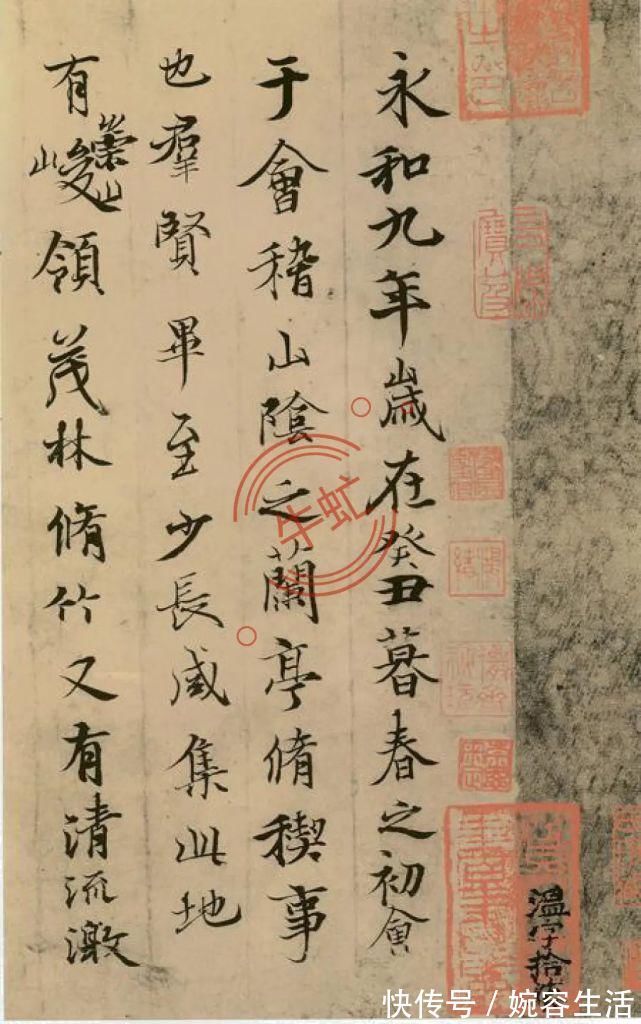 永和九年歲在癸丑暮春之初會
于會稽山陰之蘭亭脩稧事
也羣賢畢至少長咸集此地
有崇山峻領茂林脩竹又有清流激
牛虹
快传号/婉容生活